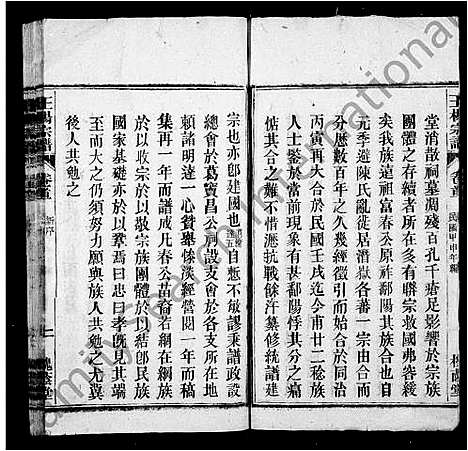 王楊宗譜 卷首 民國甲申年編 槐蔭堂
堂消敵祠墓凋殘百孔千瘡足影響於宗族
團體之存續者所在多有聯宗救國弗容緩
矣我族氏遠祖富春公原祚鄱陽其族合也自
元季避陳氏亂徙居潛嶽各蕃一宗由合而
分歷數百年之久幾經徵引而始合於前清
丙寅再大合於民國壬戌迄今甫廿二稔族
人士鉴於當前有甚鄱陽悍其分之
惟其合之難不惜瀝抗戰餘汁纂修統譜建
宗也亦卽建國也自慙不敏謬秉譜政設
總會於葛寶昌公書設支會於各支所在地
賴諸明達一心贊皋條漢經營閱一年而稿
集再一年而譜成凡春公苗裔若綱在綱族
於以收宗於以敬宗族團體於以結卽民族
國家基礎亦於以鞏焉曰忠曰孝旣見其端
至而大之仍須努力願與族人共勉之尤冀
後人共勉之
王楊宗譜 卷首 新序 一 槐蔭堂